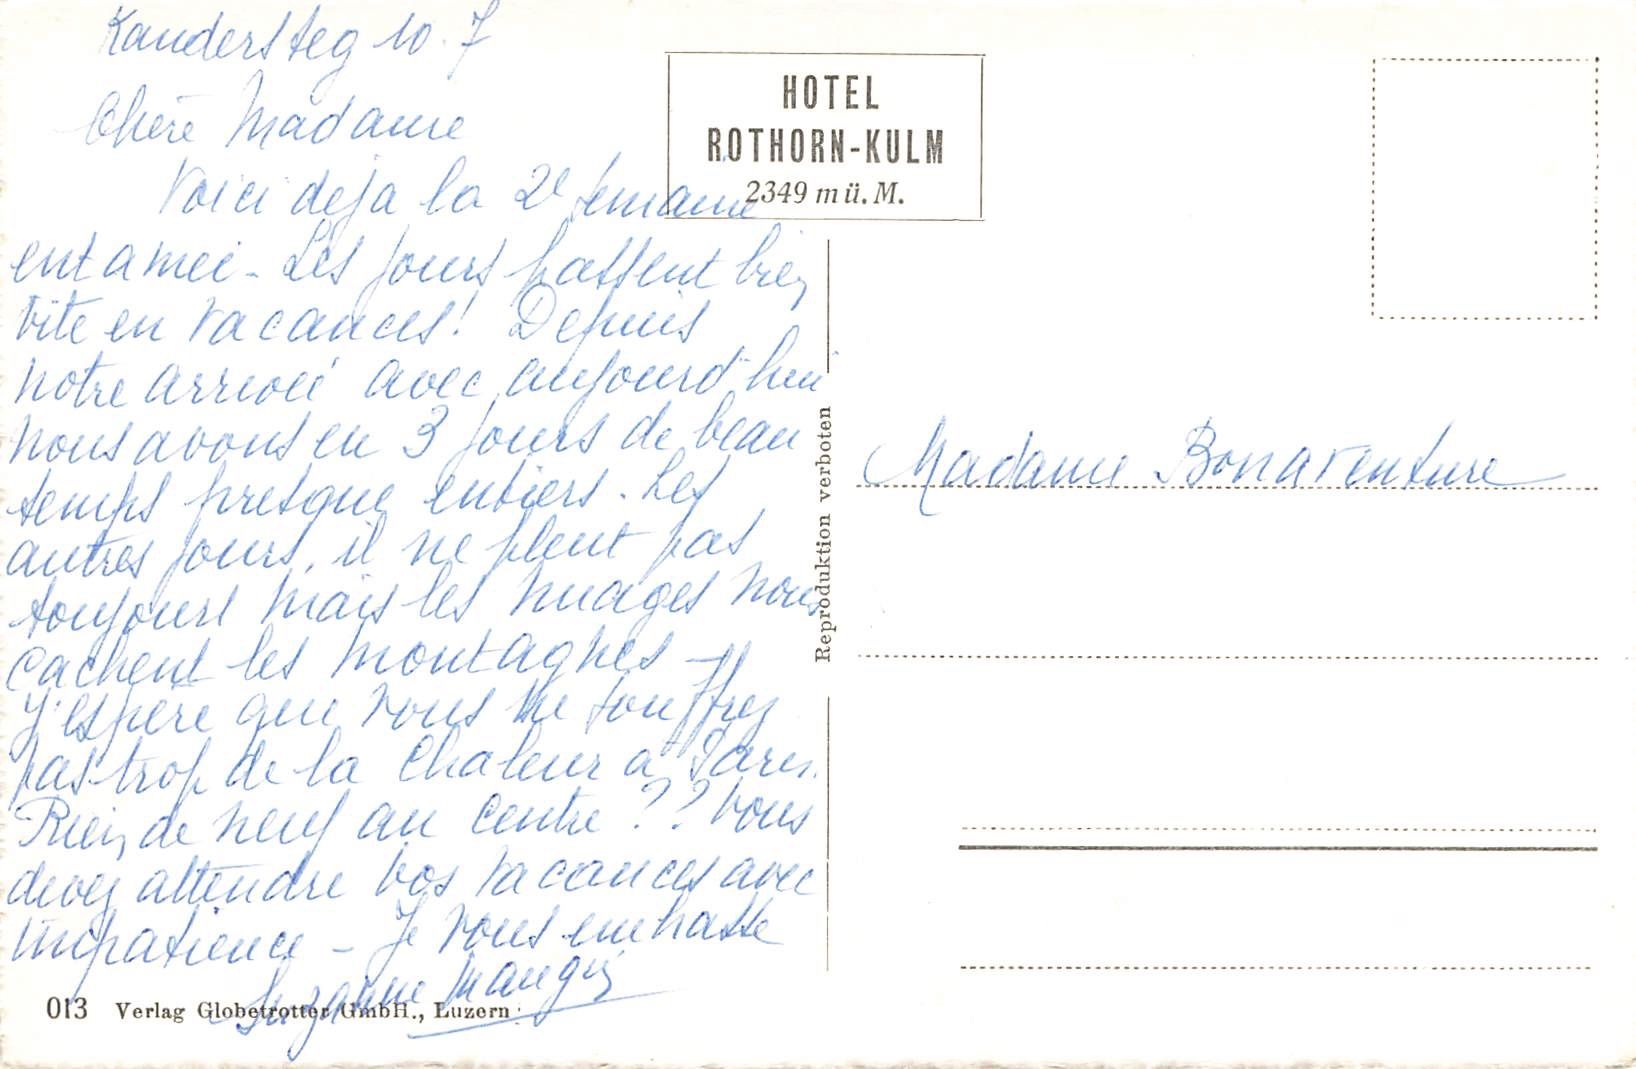 Kandersteg 10.7
Chère Madame
Voici déja la 2e semaine
entamée - Les jours passent bien
vite en vacances! Depuis
notre arrivée avec aujourd'hui
nous avons eu 3 jours de beau
temps presque entiers. Les
autres jours, il ne pleut pas
toujours mais les nuages nous
cachent les montagnes -
J'espère que vous ne souffrez
pas trop de la chaleur à Paris.
Rien de neuf au centre ?? Vous
devez attendre vos vacances avec
impatience - Je vous embrasse
Suzanne Maugin
013 Verlag Globetrotter GmbH., Luzern
HOTEL
ROTHORN-KULM
2349 m ü. M.
Reproduktion verboten
Madame Bonaventure